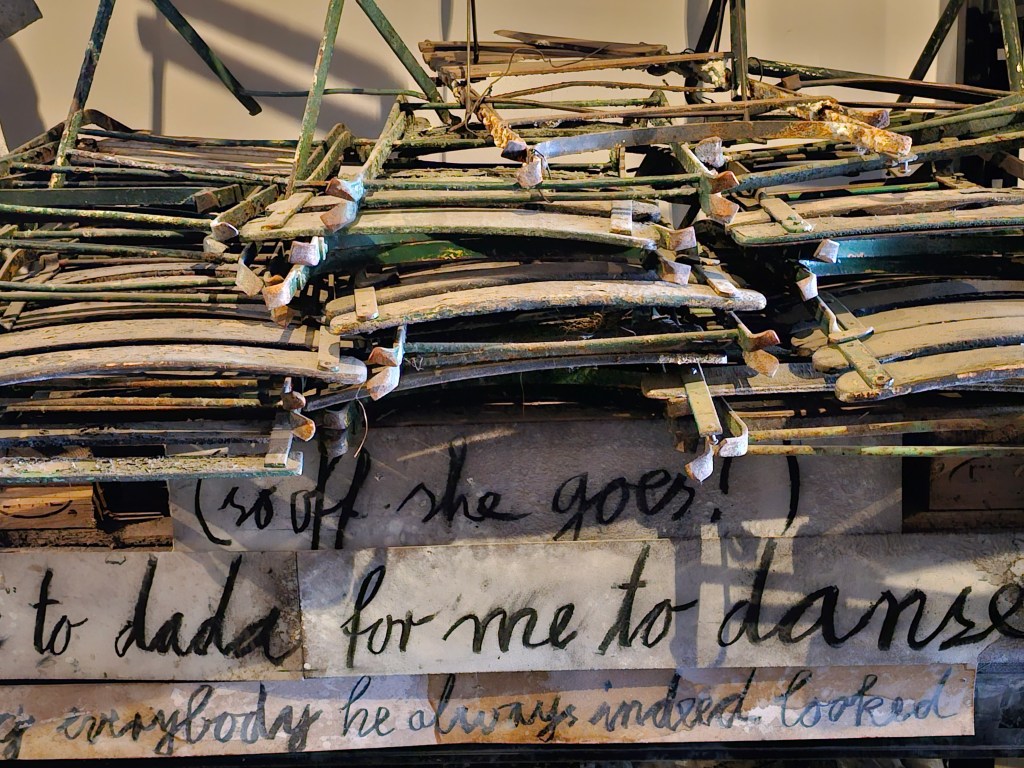 (so off she goes! )
to dada for me to danse
everybody he always indeed looked